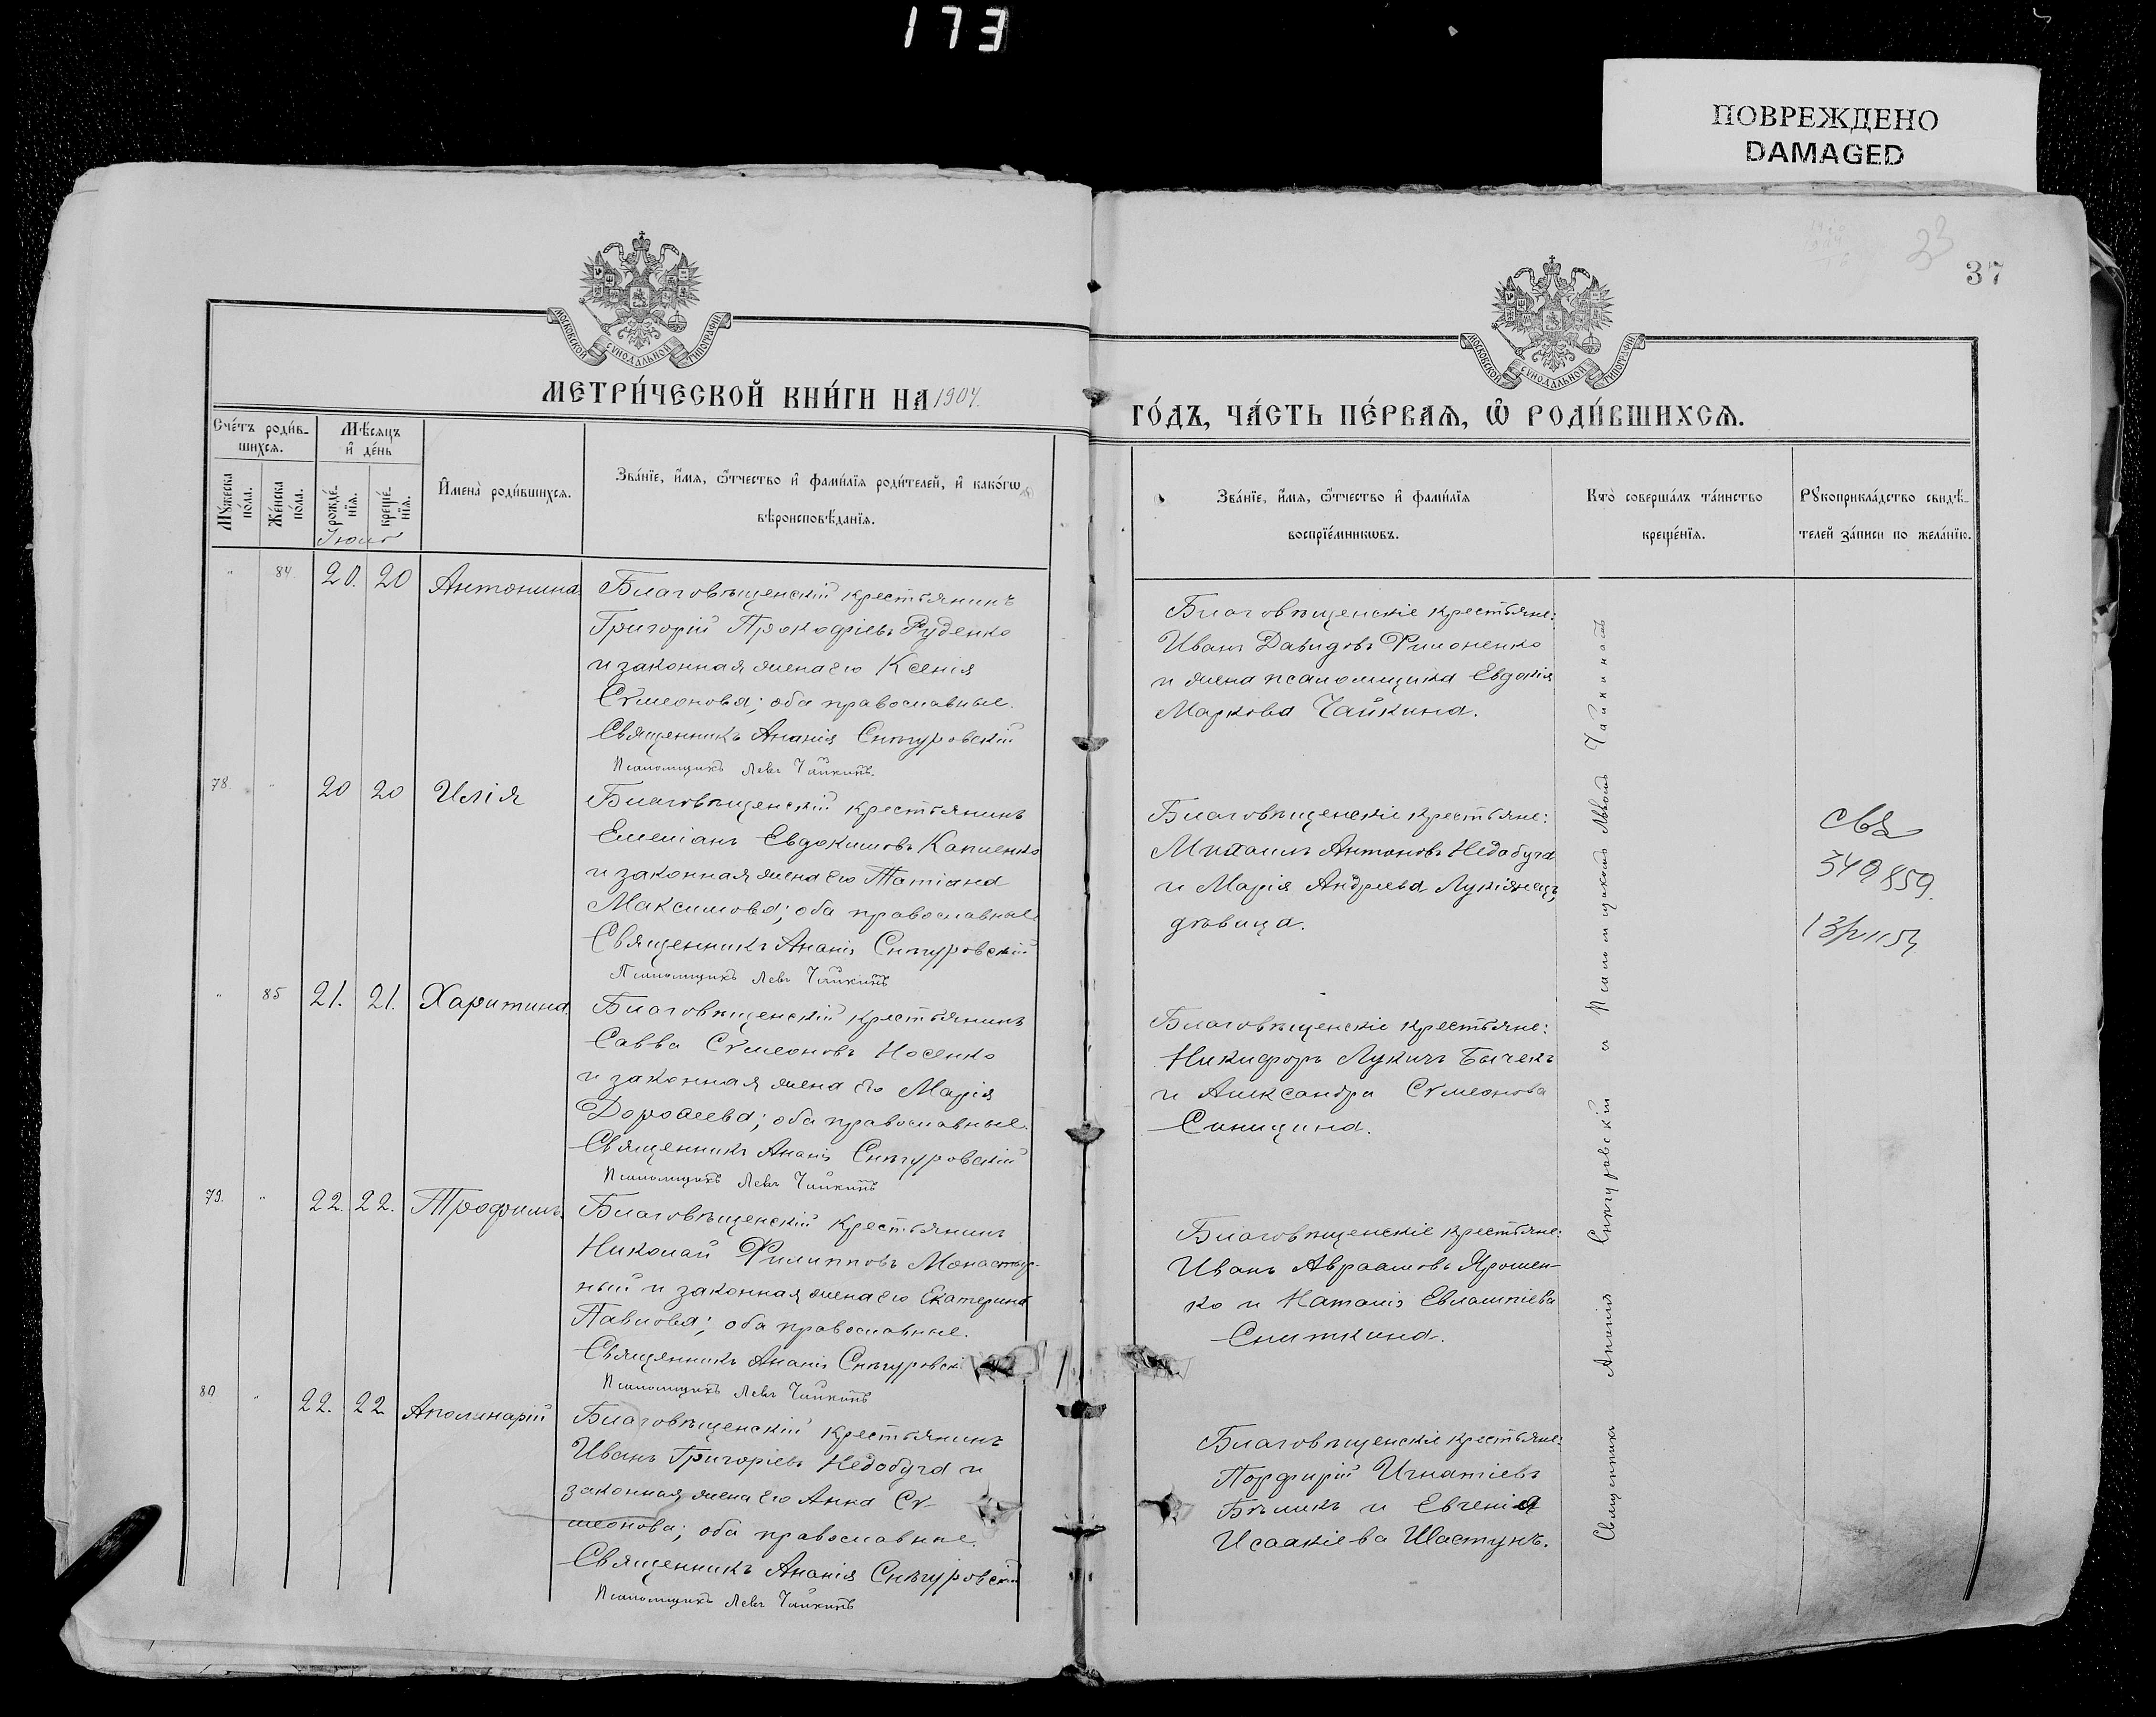 173
ПОВРЕЖДЕНО
DAMAGED
23
37
МОСКОВСКОЙ СѴНОДАЛЬНОЙ ТИПОГРАФІИ
МОСКОВСКОЙ СѴНОДАЛЬНОЙ ТИПОГРАФІИ
МЕТРИ́ЧЕСКОЙ КНИ́ГИ НА 1904.
ГО́ДЪ, ЧА́СТЬ ПЕ́РВАЯ, Ѡ РОДИ́ВШИХСЯ.
Сче́тъ роди́в-
шихся.
Мѣ́сяцъ
и де́нь
Мꙋ́жеска по́ла.
Же́нска по́ла.
рожде́-
нїя.
креще́-
нїя.
Имена̀ роди́вшихся.
Зва́нїе, и́мя, ѻ҆́тчество и фами́лїя роди́телей, и како́гѡ
вѣроисповѣ́данїя.
Зва́нїе, и́мя, ѻ҆́тчество и фами́лїя
воспрїе́мникѡвъ.
Кто̀ соверша́лъ та́инство
креще́нїя.
Рꙋкоприкла́дство свидѣ́-
телей за́писи по жела́нїю.
84. 20. 20 Антонина
Благовѣщенскій крестьянинъ
Григорій Прокофіевъ Руденко
и законная жена его Ксенія
Сѵмеонова; оба православные.
Священникъ Ананія Снѣгуровскій
Псаломщикъ Левъ Чайкинъ.
Благовѣщенскіе крестьяне:
Иванъ Давидовъ Филоненко
и жена псаломщика Евдокія
Маркова Чайкина.
78. 20 20 Илія
Благовѣщенскій крестьянинъ
Емеліанъ Евдокимовъ Карпенко
и законная жена его Татіана
Максимова; оба православные
Священникъ Ананія Снѣгуровскій
Псаломщикъ Левъ Чайкинъ
Благовѣщенскіе крестьяне:
Михаилъ Антоновъ Недобуга
и Марія Андреева Лукіянецъ,
дѣвица.
349859.
85 21. 21. Харитина
Благовѣщенскій крестьянинъ
Савва Сѵмеоновъ Носенко
и законная жена его Марія
Дороѳеева; оба православные.
Священникъ Ананія Снѣгуровскій
Псаломщикъ Левъ Чайкинъ
Благовѣщенскіе крестьяне:
Никифоръ Лукичъ Бычекъ
и Александра Сѵмеонова
Синицина.
79. 22. 22. Трофимъ.
Благовѣщенскій крестьянинъ
Николай Филипповъ Монастыр-
ный и законная жена его Екатерина
Павлова; оба православные.
Священникъ Ананія Снѣгуровскі
Псаломщикъ Левъ Чайкинъ
Благовѣщенскіе крестьяне:
Иванъ Авраамовъ Ярошен-
ко и Наталія Евлампіева
Сниткина.
80 22. 22 Аполинарій
Благовѣщенскій крестьянинъ
Иванъ Григоріевъ Недобуга и
законная жена его Анна Сѵ-
меонова; оба православные.
Священникъ Ананія Снѣгуровскій
Псаломщикъ Левъ Чайкинъ
Благовѣщенскіе крестьяне:
Порфирій Игнатіевъ
Бѣликъ и Евгенія
Исаакіева Шастунъ.
Священникъ Ананія Снѣгуровскій и Псаломщикъ Левъ Чайкинъ